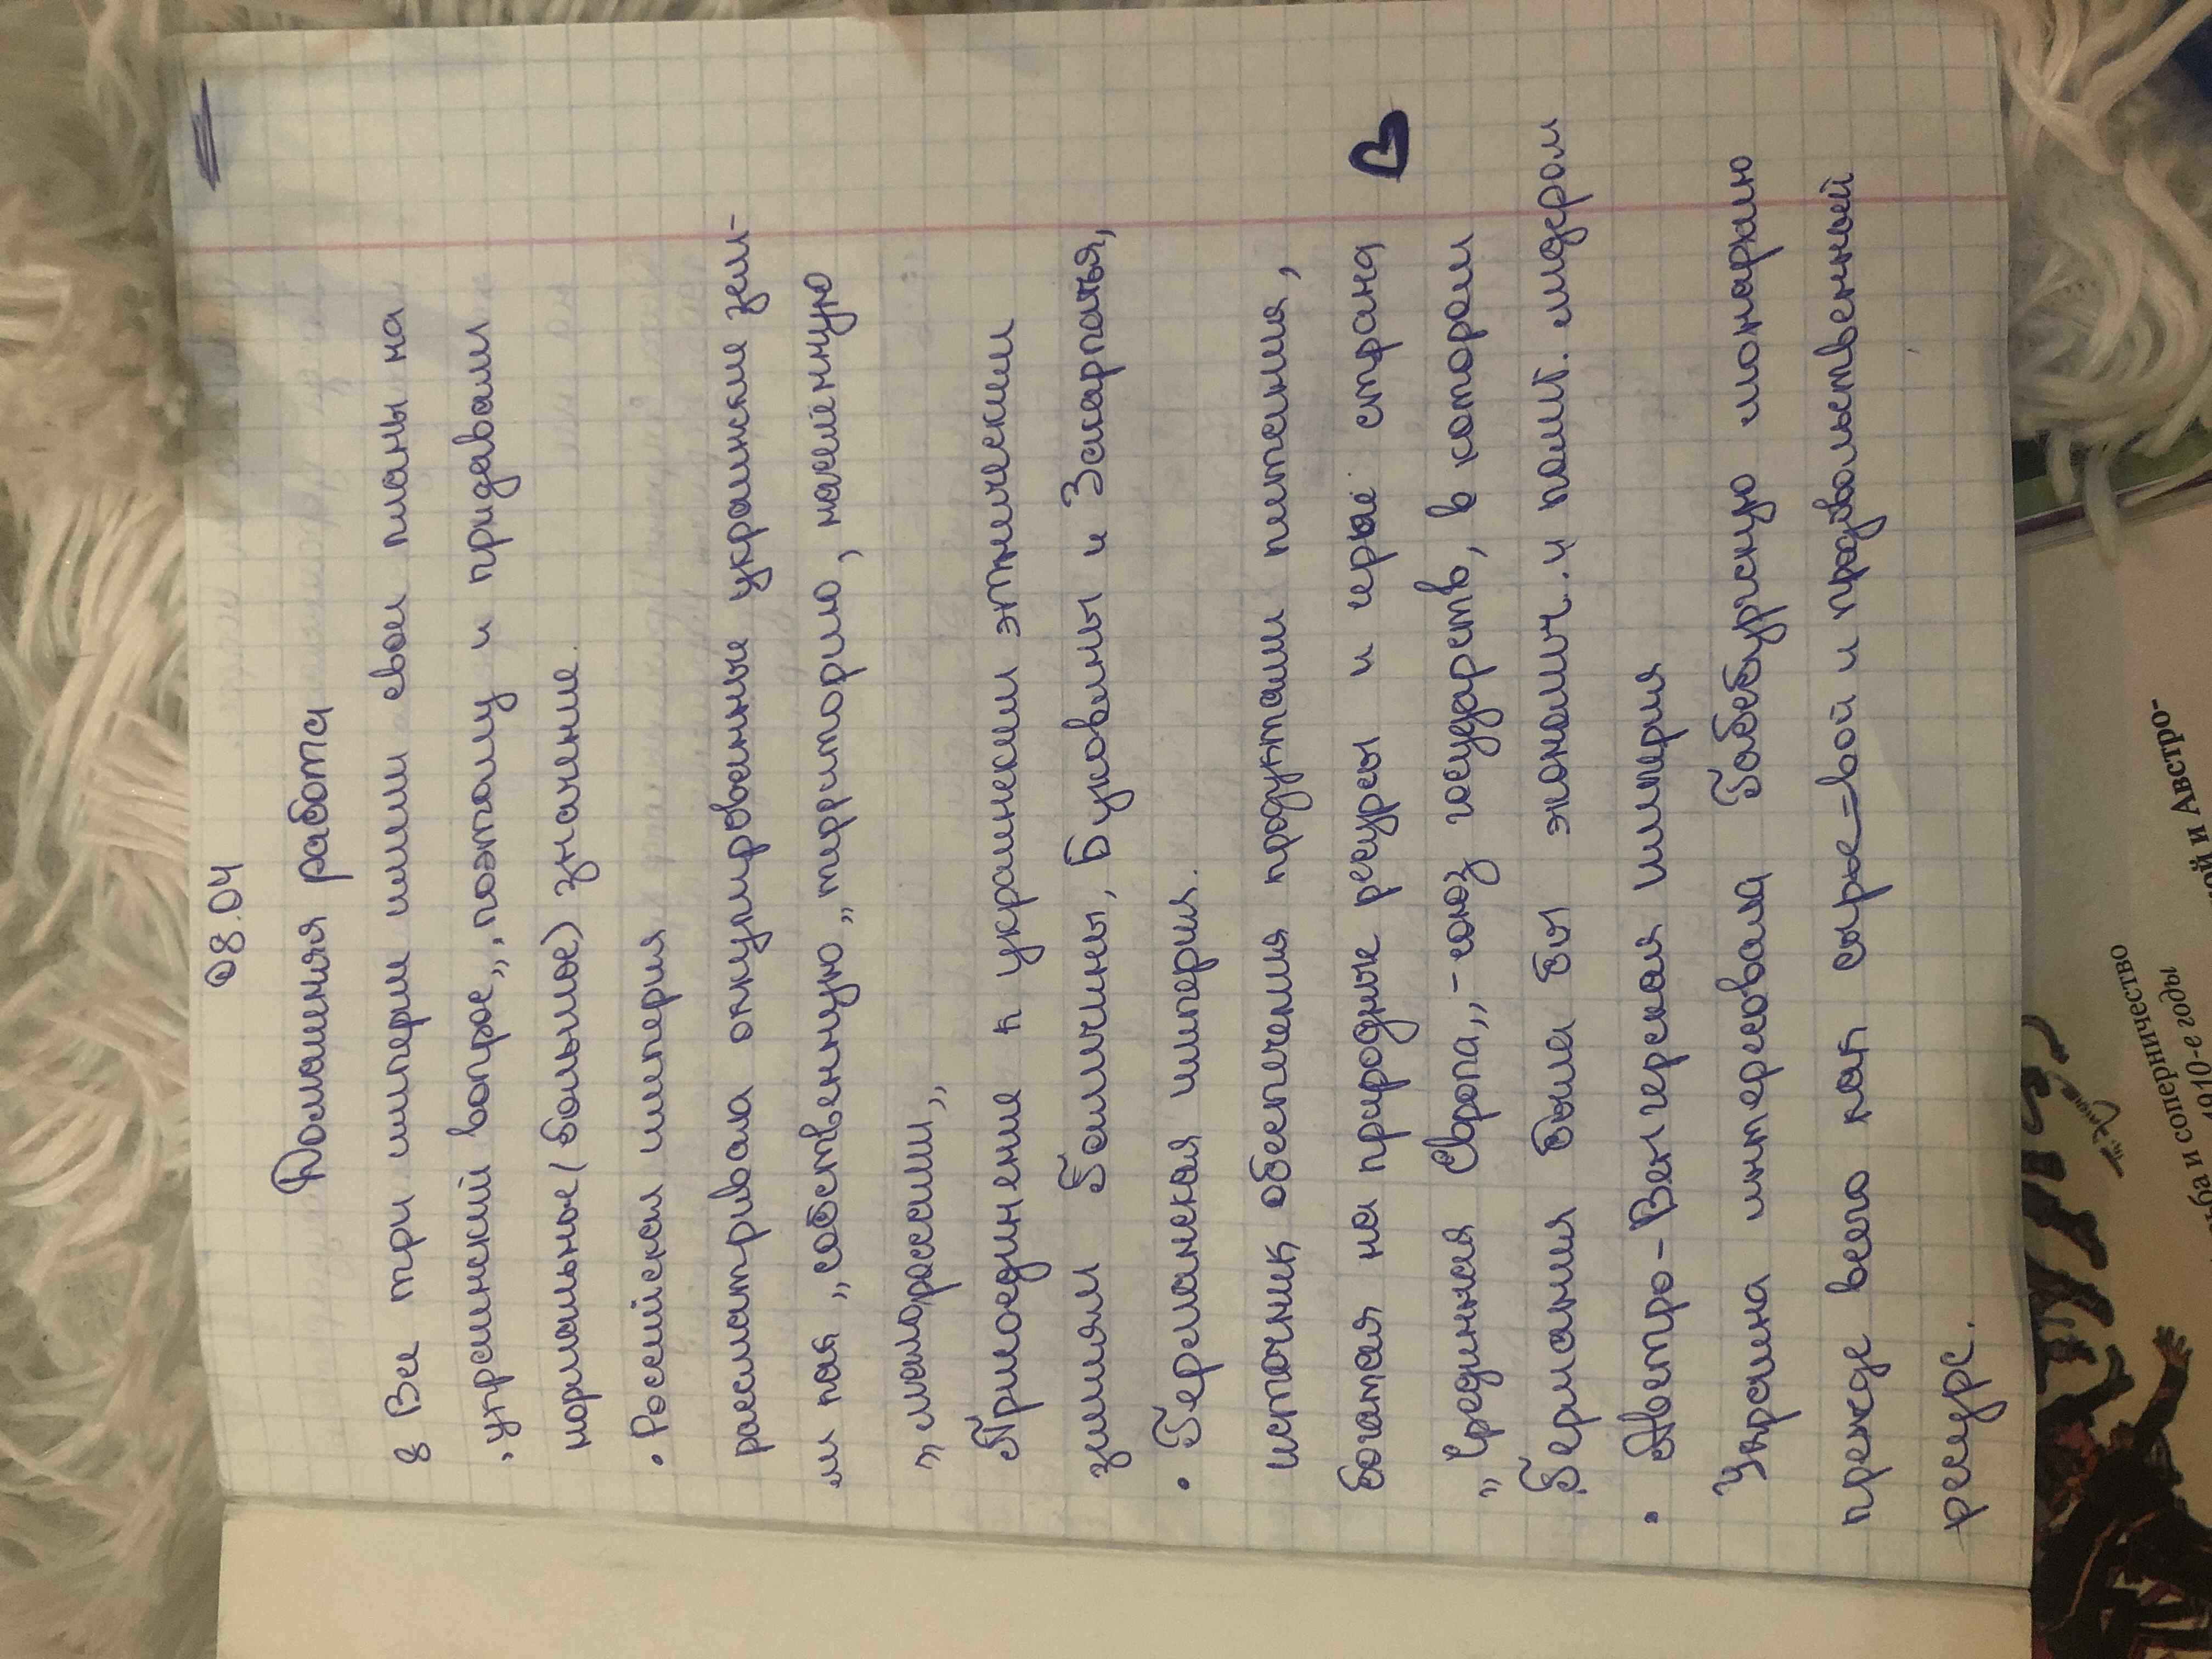 08.04
Домашняя работа
Все три империи имели свои планы на
"украинский вопрос", поэтому и придавали
нормальное (большое) значение.
• Российская империя
рассматривала оккупированные украинские зем-
ли как „собственную„ территорию, населенную
„малороссами„
Присоединение к украинским этническим
землям Галичины, Буковины и Закарпатья,
• Германская империя.
источник обеспечения продуктами питания,
богатая на природные ресурсы и сырьё страна
„Срединная Европа„ - союз государств, в котором
Германия была бы экономич. и полит. лидером
• Австро-Венгерская империя
Украина интересовала Габсбургскую монархию
прежде всего как сырьевой и продовольственный
ресурс.
ба и соперничество
1910-е годы
ой и Австро-